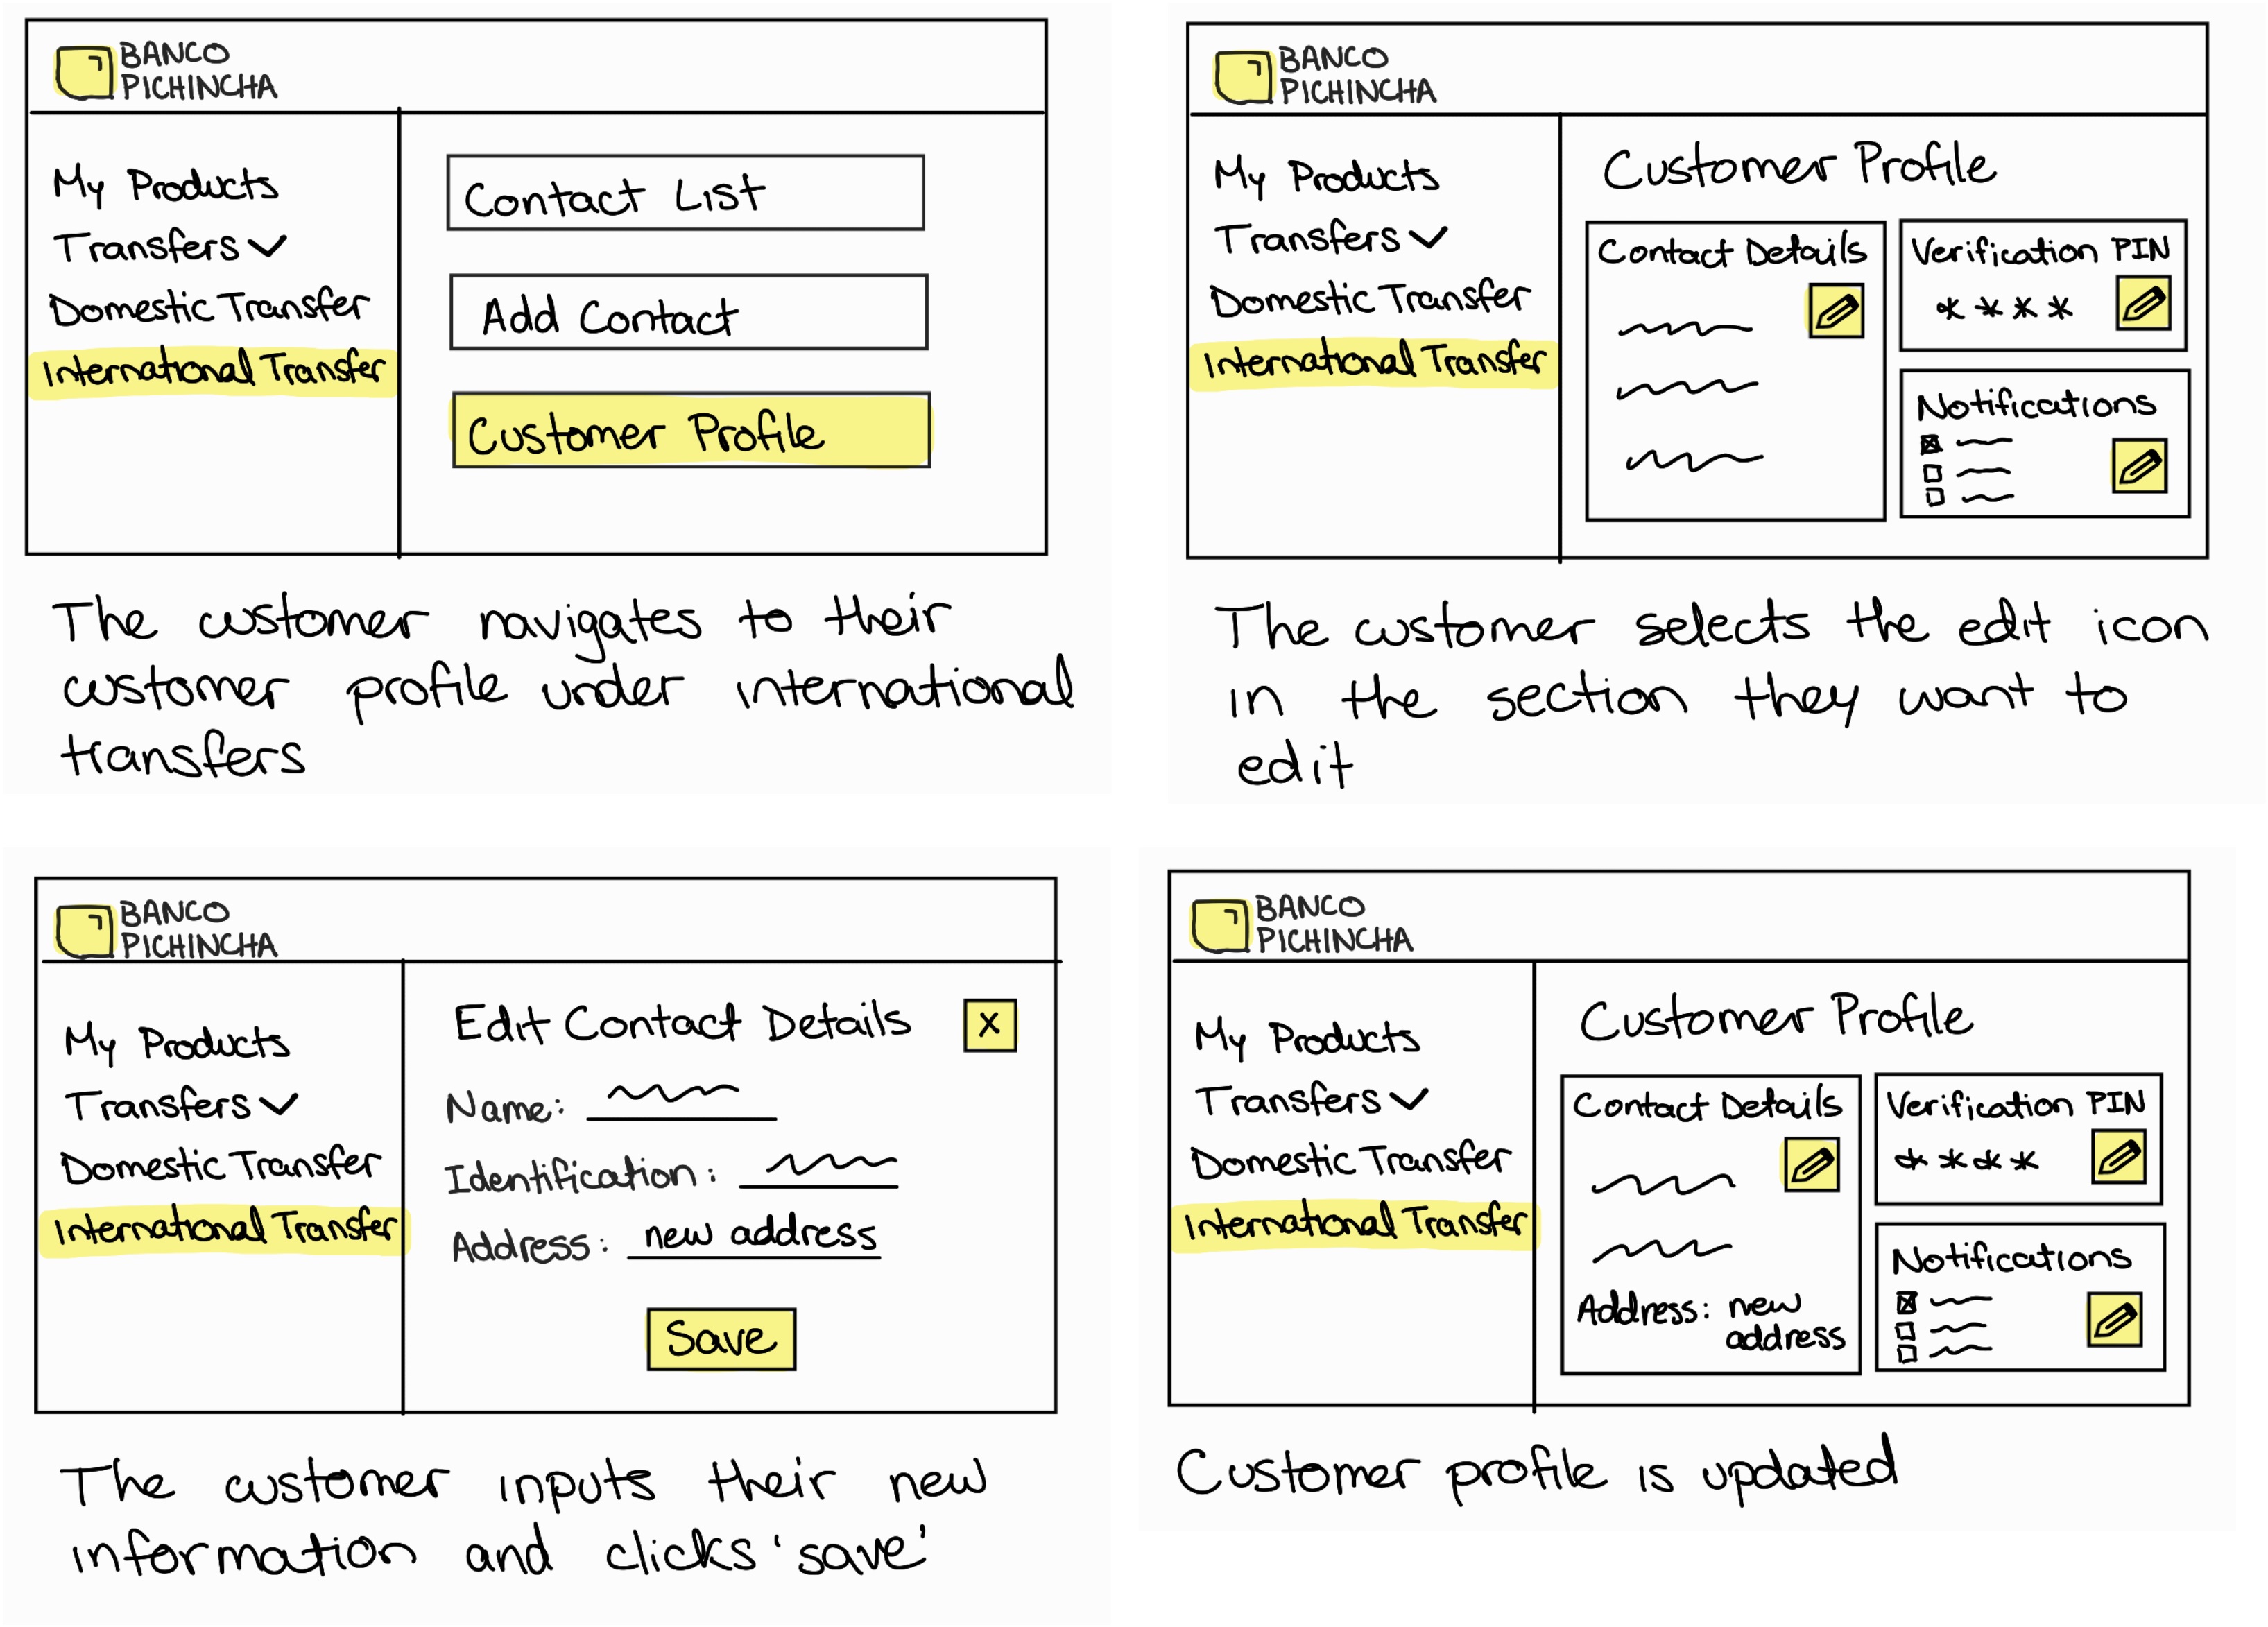 BANCO
PICHINCHA
My Products
Transfers
Domestic Transfer
International Transfer
Contact List
Add Contact
Customer Profile
The customer navigates to their
customer profile under international
transfers
BANCO
PICHINCHA
My Products
Transfers
Domestic Transfer
International Transfer
Customer Profile
Contact Details
Verification PIN
* * * *
Notifications
The customer selects the edit icon
in the section they want to
edit
BANCO
PICHINCHA
My Products
Transfers
Domestic Transfer
International Transfer
Edit Contact Details
X
Name:
Identification:
Address: new address
Save
The customer inputs their new
information and clicks 'save'
BANCO
PICHINCHA
My Products
Transfers
Domestic Transfer
International Transfer
Customer Profile
Contact Details
Address: new
address
Verification PIN
* * * *
Notifications
Customer profile is updated